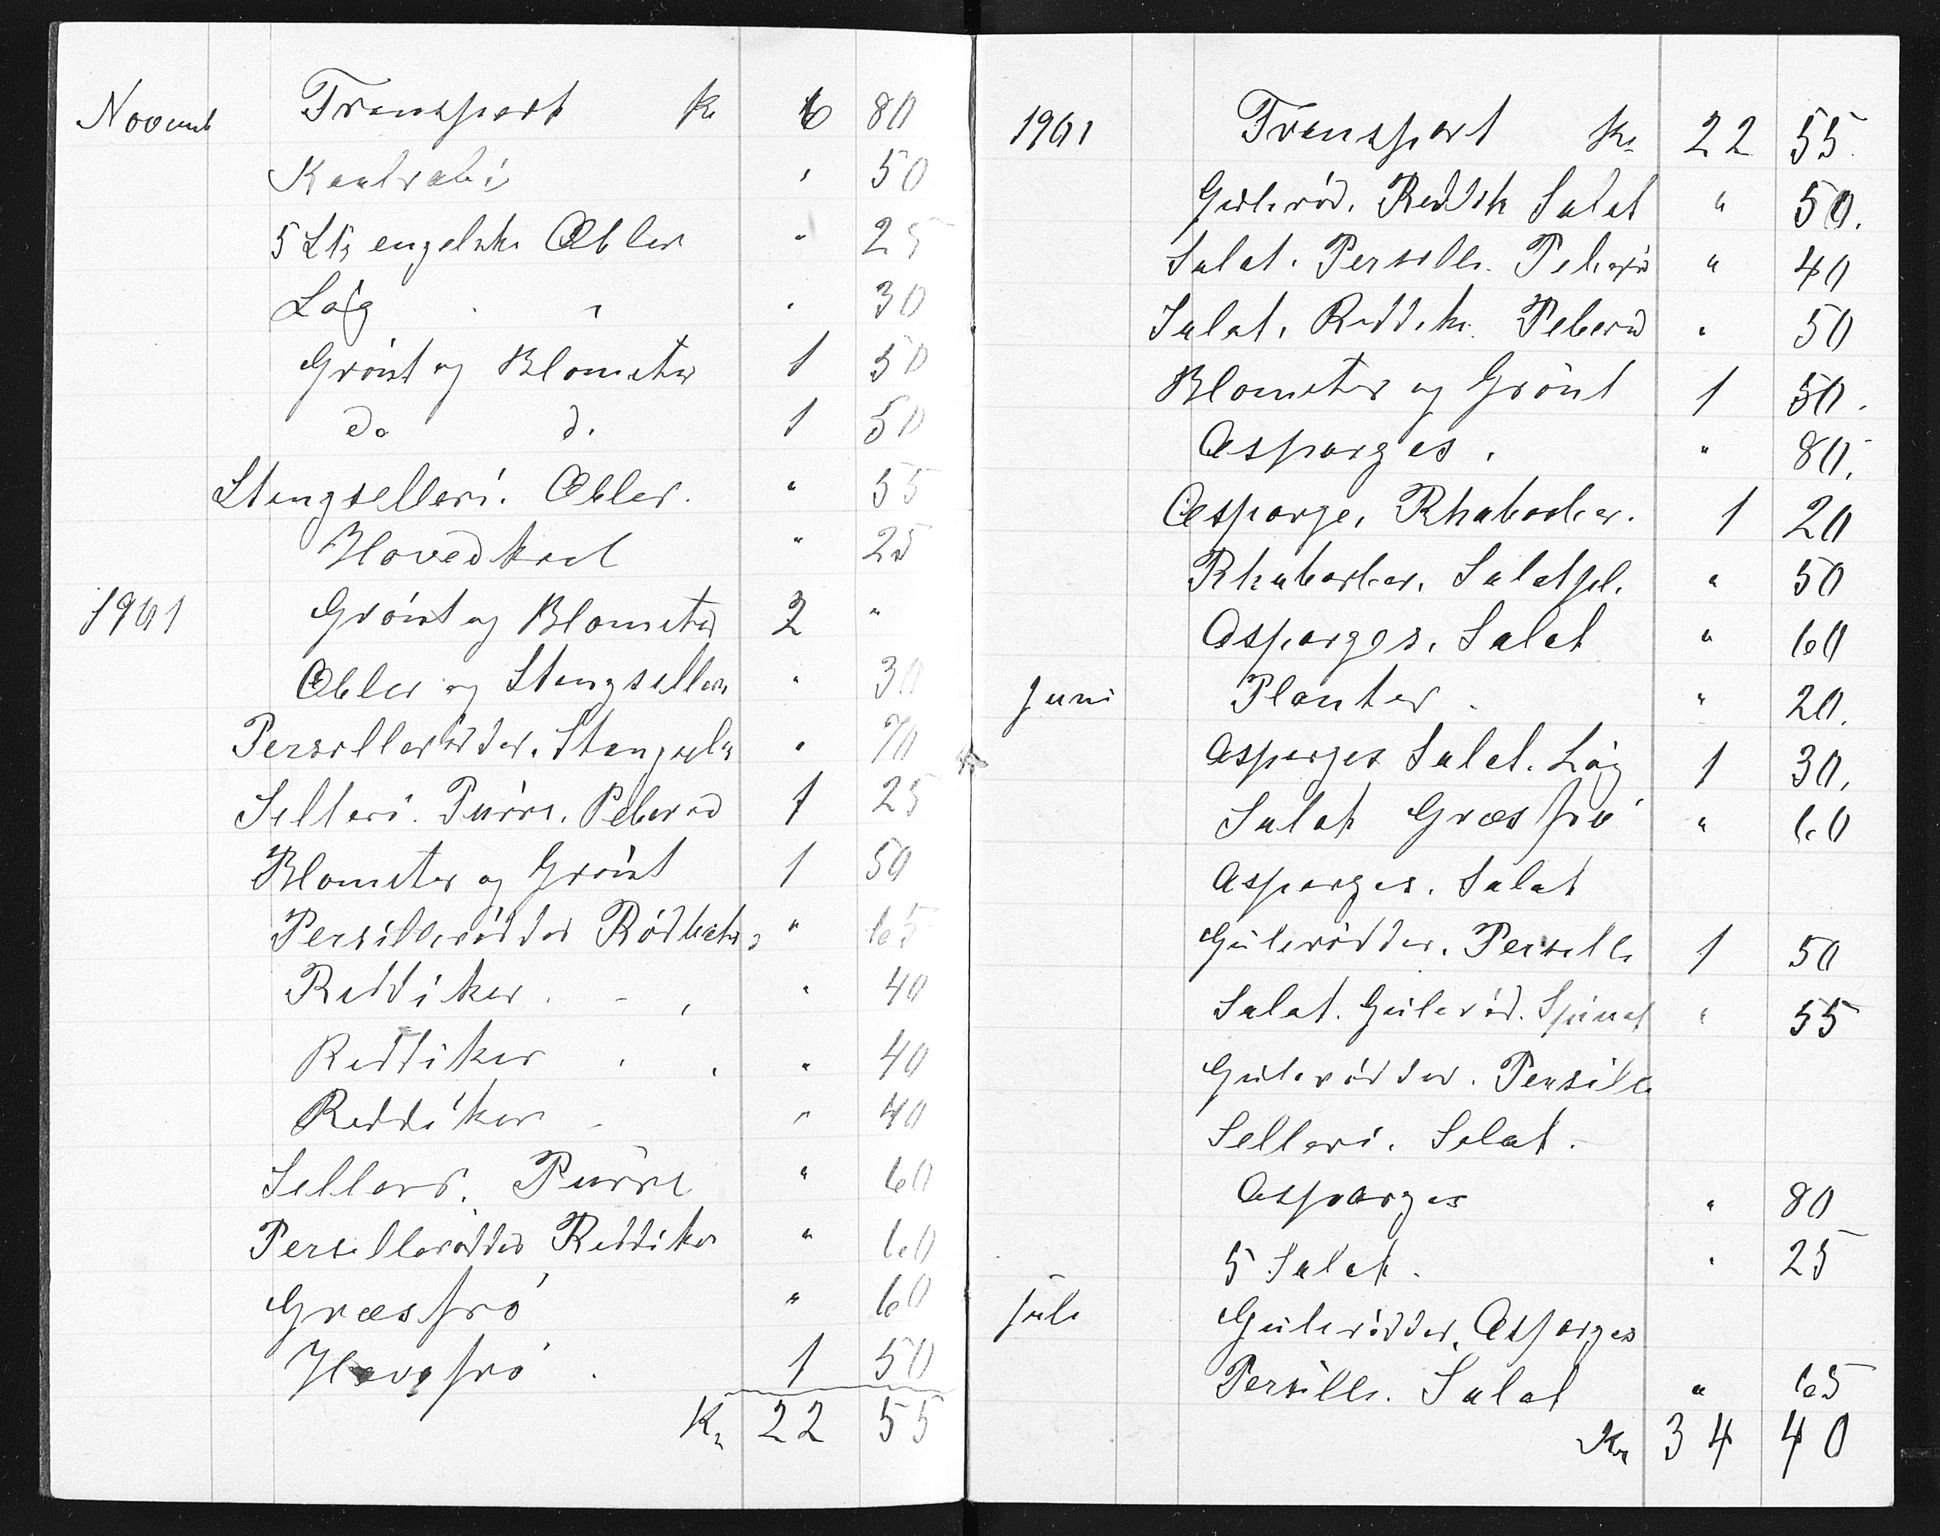 Novemb Transport Kr 6 80
Kaalrabi " 50
5 Stk engelske Æbler " 25
Løg " " 30
Grönt og Blomster 1 50
do do 1 50
Stengselleri. Æbler. " 55
Hovedkaal " 25
1901 Grönt og Blomster 2 "
Æbler og Stengselleri " 30
Persillerødder. Stengsele " 70
Selleri. Purre. Peberrod 1 25
Blomster og Grönt 1 50
Persillerødder Rødbeder " 65
Reddiker . - , " 40
Reddiker . . " 40
Reddiker - " 40
Selleri. Purre " 60
Persillerødder Reddiker " 60
Græsfrö " 60
Havefrö . 1 50
Kr 22 55
1901 Transport Kr 22 55.
Gulerød. Reddik Salat " 50.
Salat. Persille. Peberrod " 40
Salat. Reddike. Peberrod " 50
Blomster og Grönt 1 50.
Asparges . " 80.
Asparge, Rhabarber. 1 20
Rhabarber. Salatpl. " 50
Asparges. Salat " 60
Juni Planter . " 20.
Asparges Salat. Løg 1 30.
Salat Græsfrö " 60
Asparges. Salat
Gulerødder. Persille 1 50
Salat. Gulerød. Spinat " 55
Gulerødder. Persille
Selleri. Salat.
Asparges " 80
5 Salat. " 25
Juli Gulerødder. Asparges
Persille. Salat " 65
Kr 34 40